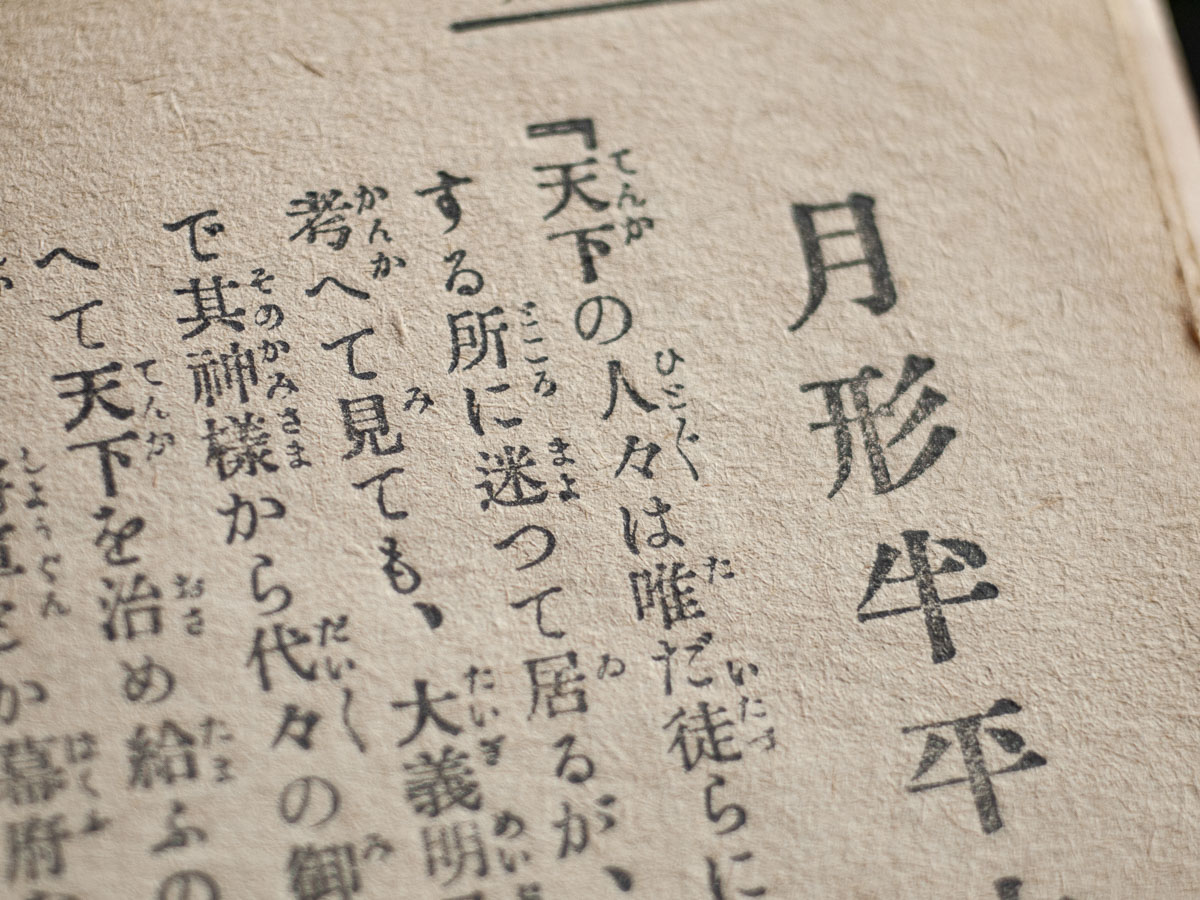 月形半平
『天下の人々は唯だ徒らに
する所に迷つて居るが、
考へて見ても、大義明
で其神様から代々の御
へて天下を治め給ふの
か幕府